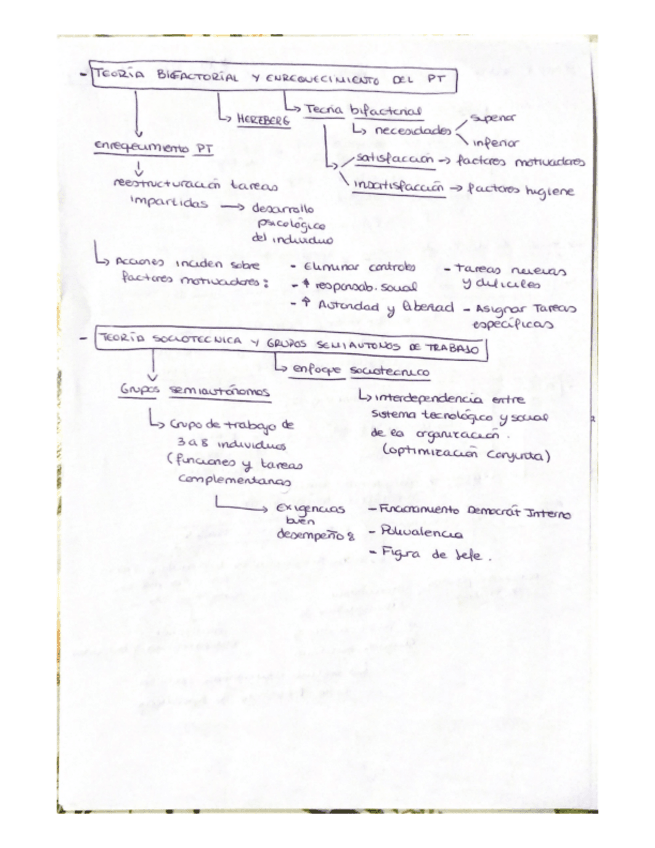 - TEORÍA BIFACTORIAL Y ENRIQUECIMIENTO DEL PT
↳ HERZBERG
↳ Teoria bifactorial
↳ necesidades
superior
inferior
enriquecimiento PT
satisfacción → factores motivadores
insatisfacción → factores higiene
reestructuración tareas
impartidas → desarrollo
psicológico
del individuo
↳ Acciones inciden sobre
factores motivadores:
- Eliminar controles
- ↑ responsab. social
- ↑ Autoridad y libertad
- tareas nuevas
y dificiles
- Asignar Tareas
específicas
- TEORÍA SOCIOTECNICA Y GRUPOS SEMIAUTONOS DE TRABAJO
↳ enfoque sociotecnico
Grupos semiautónomos
↳ interdependencia entre
sistema tecnológico y social
de la organización.
(optimización conjunta)
↳ Grupo de trabajo de
3 a 8 individuos
(funciones y tareas
complementarias
→ Exigencias
buen
desempeño:
- Funcionamiento Democrát Interno
- Polivalencia
- Figura de Jefe.